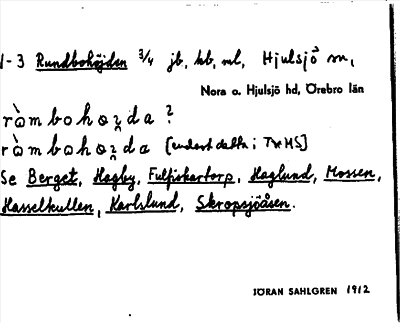 1-3 Rundbohöjden 3/4 jb, hb, ml, Hjulsjö sn,
Nora o. Hjulsjö hd, Örebro län
ròmbohɵʒda ?
ròmbohɵʒda [endast detta i TxHS]
Se Berget, Hagby, Fulfiskartorp, Haglund, Mossen,
Hasselkullen, Karlslund, Skropsjöåsen.
JÖRAN SAHLGREN 1912